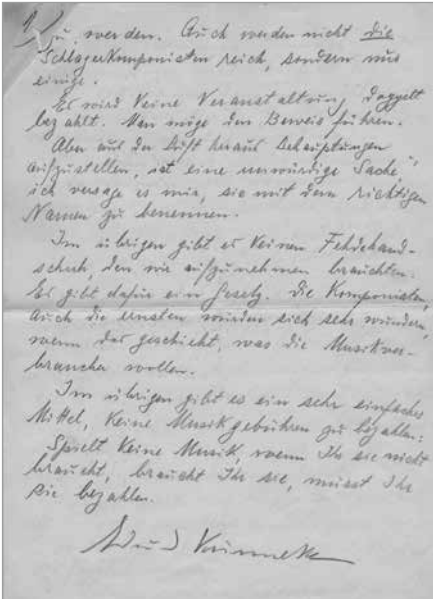 zu werden. Auch werden nicht die
Schlagerkomponisten reich, sondern nur
einige.
Es wird keine Veranstaltung doppelt
bezahlt. Man möge den Beweis führen.
Aber aus der Luft heraus Behauptungen
aufzustellen, ist eine unwürdige Sache,
ich versage es mir, sie mit dem richtigen
Namen zu benennen.
Im übrigen gibt es keinen Fehdehand-
schuh, den wir aufzunehmen brauchten.
Es gibt dafür ein Gesetz. Die Komponisten,
auch die ernsten würden sich sehr wundern,
wenn das geschieht, was die Musikver-
braucher wollen.
Im übrigen gibt es ein sehr einfaches
Mittel, keine Musikgebühren zu bezahlen:
Spielt keine Musik, wenn Ihr sie nicht
braucht, braucht Ihr sie, müsst Ihr
sie bezahlen.
Eduard Künneke